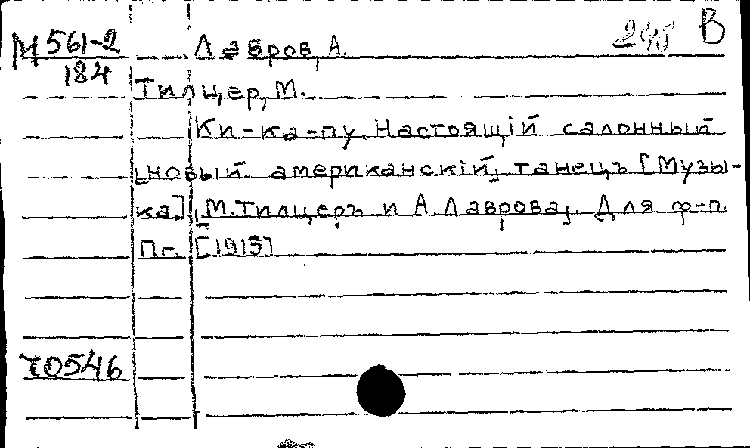 М 561-2 Лавров, А. В
184
Тилцер, М.
Ки-ка-пу. Настоящій салонный
новый американскій танецъ [Музы-
ка] М. Тилцеръ и А. Лаврова, Для ф-п.
Пг. [1915]
70546